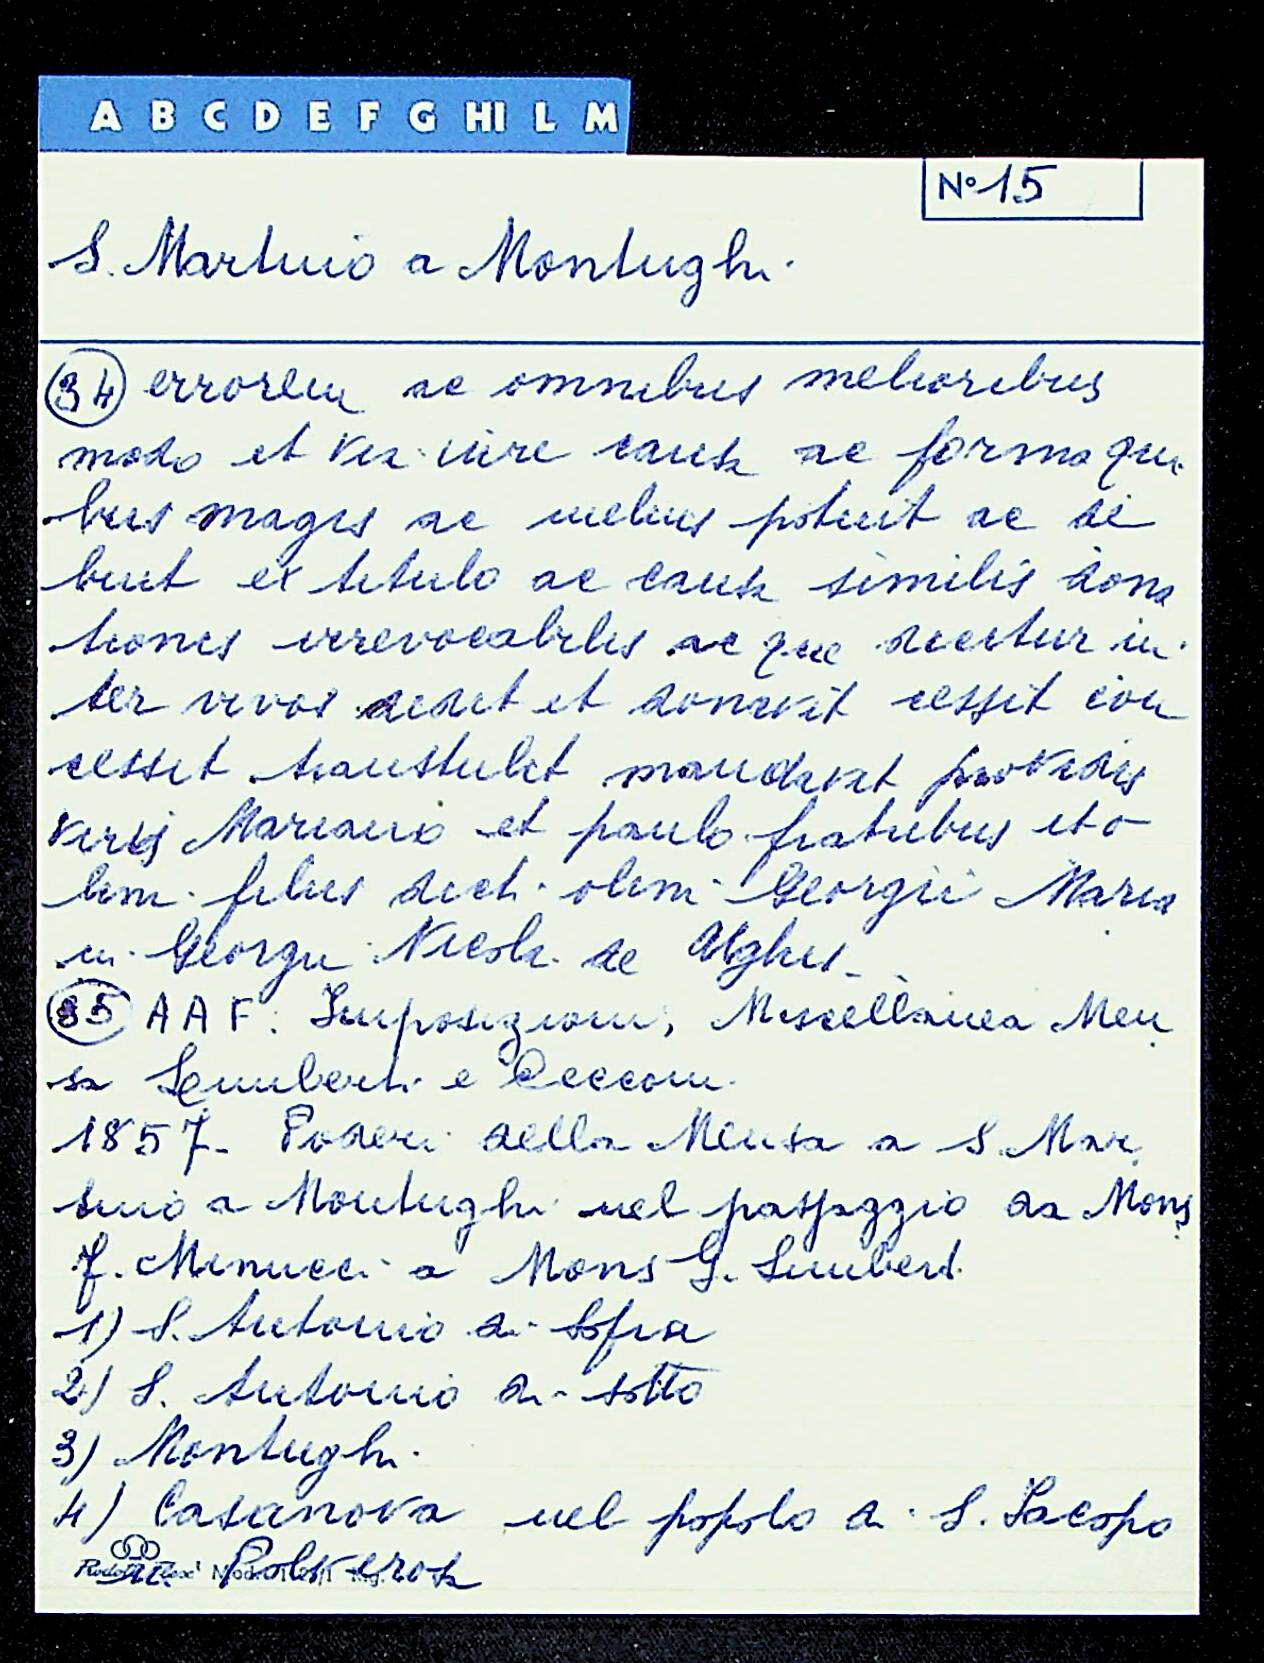 A B C D E F G HI L M
N° 15
S. Martino a Montughi
(34) errorem ac omnibus melioribus
modo et via iure causa ac forma qui
bus magis ac melius potuit ac de
buit ex titulo ac causa similis dona
tionis irrevocabilis ac que dicitur in
ter vivos dedit et donavit cessit con
cessit transtulit mandavit providis
viris Mariano et paulo fratribus et o
lim filiis dicti olim Georgii Maria
ni Georgii Nicola de Ughis
(35) AAF: Imposizioni, Miscellanea Men
sa Limberti e Cecconi
1857- Poderi della Mensa a S. Mar
tino a Montughi nel passaggio da Mons
F. Minucci a Mons G. Limberti
1) S. Antonio di Sopra
2) S. Antonio di sotto
3) Montughi
4) Casanova nel popolo di S. Jacopo
in Polverosa